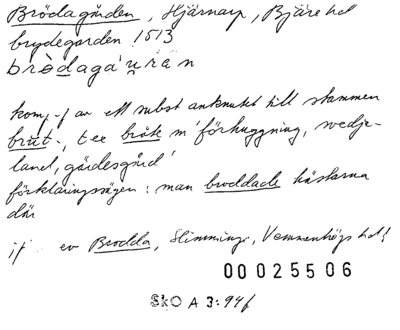 Brödagården, Hjärnarp, Bjäre hd
brydegarden 1513
komp-f av ett subst anknutet till stammen
brut-, t ex bråte m 'förhuggning, svedje-
land, gärdesgård'
förklaringssägen: man broddade hästarna
där
jf ev Brodda, Slimminge, Vemmenhögs hd
00 025506
SkO A 3:94f